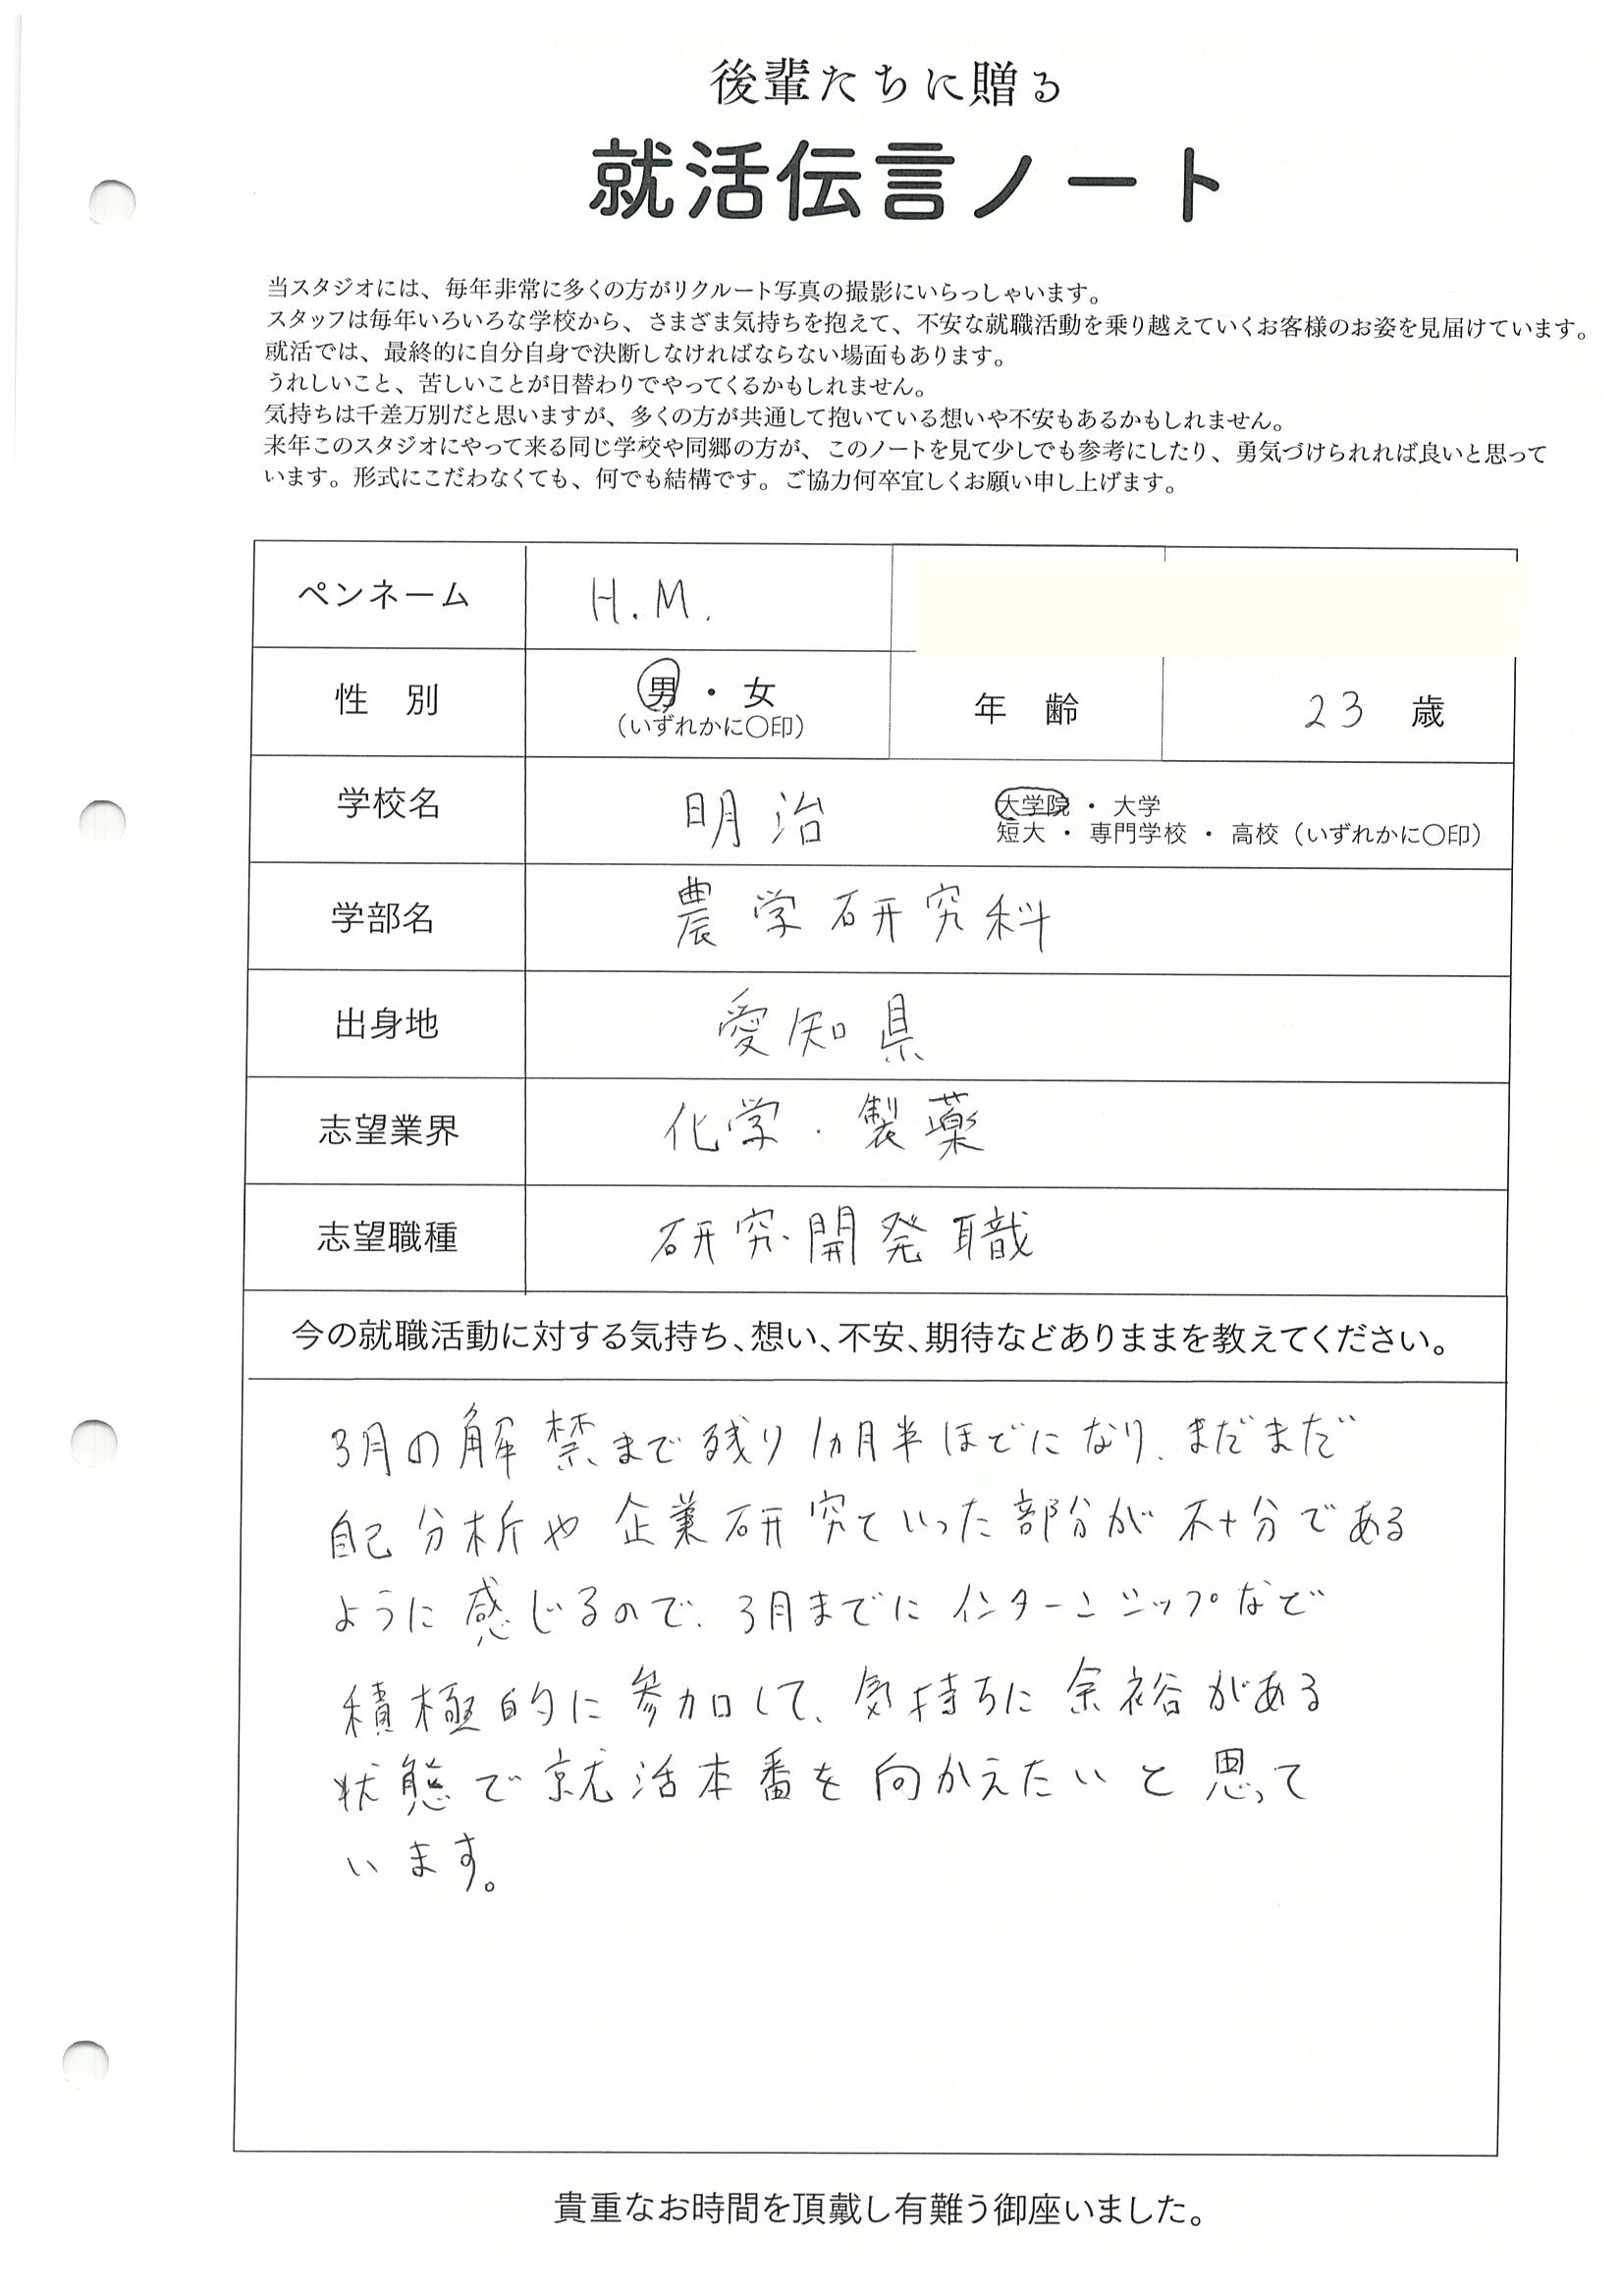 後輩たちに贈る
就活伝言ノート
当スタジオには、毎年非常に多くの方がリクルート写真の撮影にいらっしゃいます。
スタッフは毎年いろいろな学校から、さまざま気持ちを抱えて、不安な就職活動を乗り越えていくお客様のお姿を見届けています。
就活では、最終的に自分自身で決断しなければならない場面もあります。
うれしいこと、苦しいことが日替わりでやってくるかもしれません。
気持ちは千差万別だと思いますが、多くの方が共通して抱いている想いや不安もあるかもしれません。
来年このスタジオにやって来る同じ学校や同郷の方が、このノートを見て少しでも参考にしたり、勇気づけられれば良いと思って
います。形式にこだわなくても、何でも結構です。ご協力何卒宜しくお願い申し上げます。
ペンネーム H.M.
性 別 男・女 年 齢 23 歳
(いずれかに〇印)
学校名 明治 大学院 ・ 大学
短大 ・ 専門学校 ・ 高校(いずれかに〇印)
学部名 農学研究科
出身地 愛知県
志望業界 化学・製薬
志望職種 研究・開発職
今の就職活動に対する気持ち、想い、不安、期待などありままを教えてください。
3月の解禁まで残り1ヵ月半ほどになり、まだまだ
自己分析や企業研究といった部分が不十分である
ように感じるので、3月までにインターンシップなど
積極的に参加して、気持ちに余裕がある
状態で就活本番を向かえたいと思って
います。
貴重なお時間を頂戴し有難う御座いました。